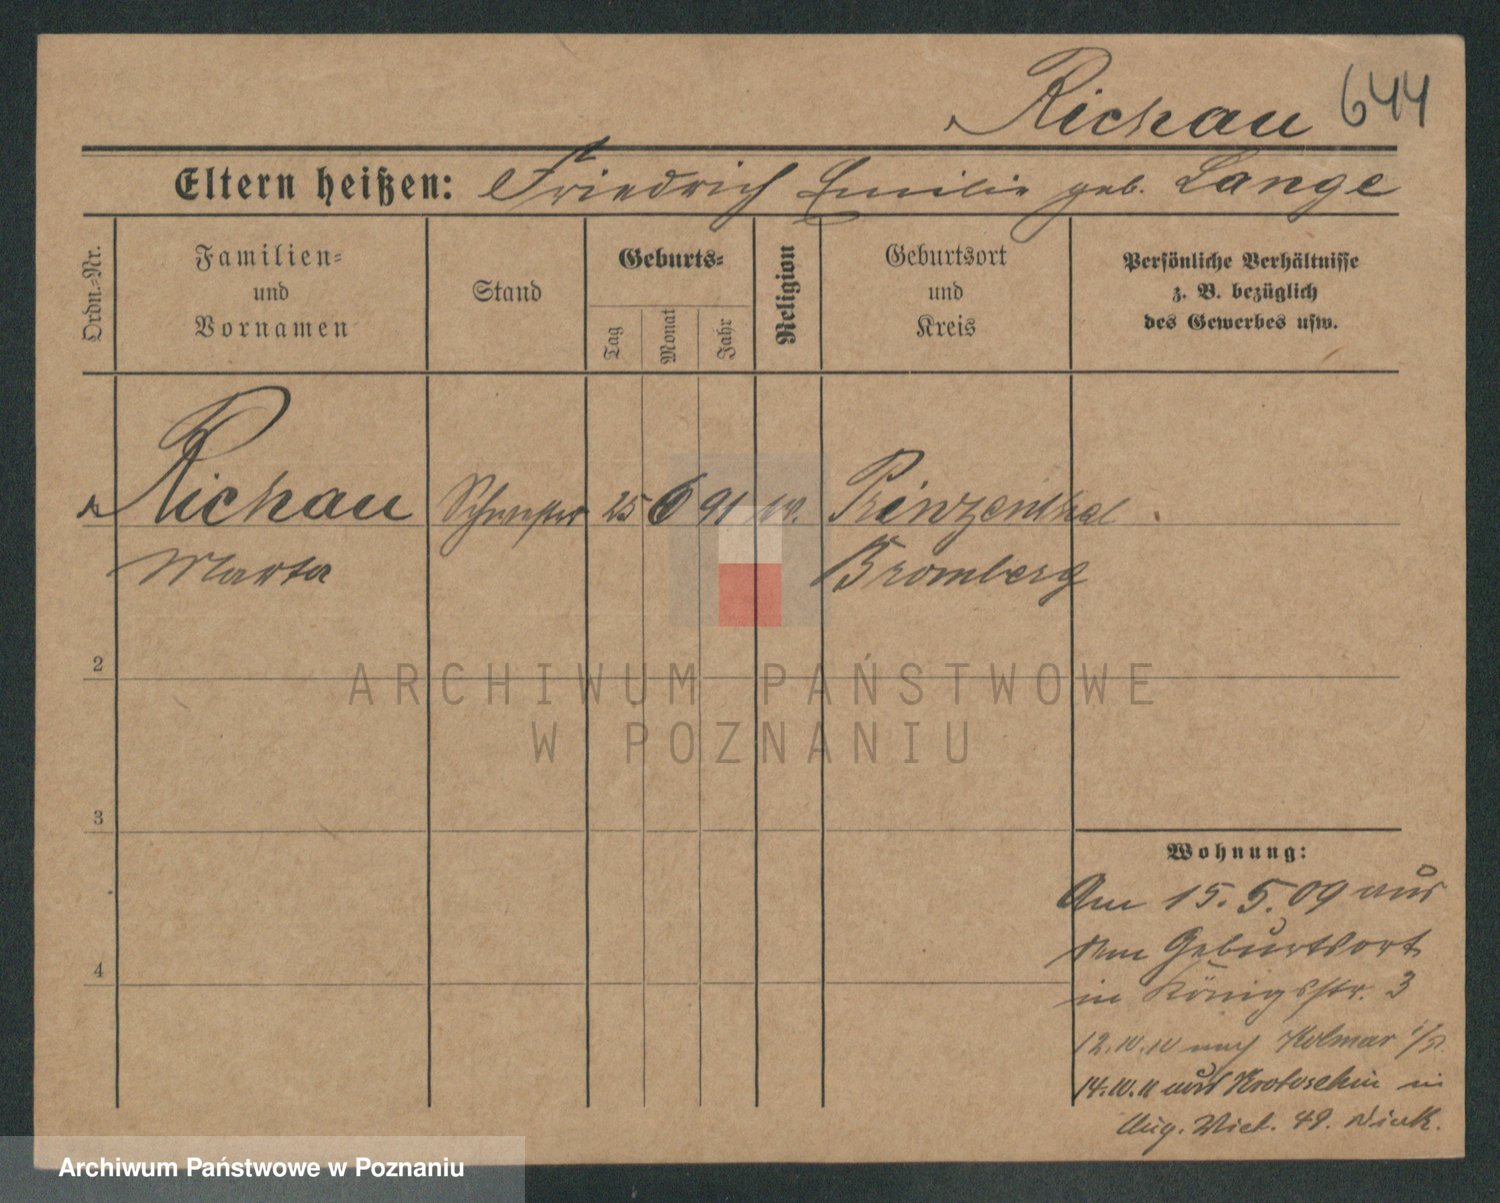 Richau 644
Eltern heißen: Friedrich Emilie geb. Lange
Ordn.-Nr.
Familien-
und
Vornamen
Stand
Geburts-
Tag
Monat
Jahr
Religion
Geburtsort
und
Kreis
Persönliche Verhältnisse
z. B. bezüglich
des Gewerbes usw.
Richau Schwester 25 6 91 ev. Prinzenthal
Marta Bromberg
2
3
4
Wohnung:
Am 15.5.09 aus
dem Geburtsort
in Königsstr. 3
12.10.10 nach Kolmar i/P.
14.10.11 aus Krotoschin in
Aug. Vict. 49.
ARCHIWUM PAŃSTWOWE
W POZNANIU
Archiwum Państwowe w Poznaniu